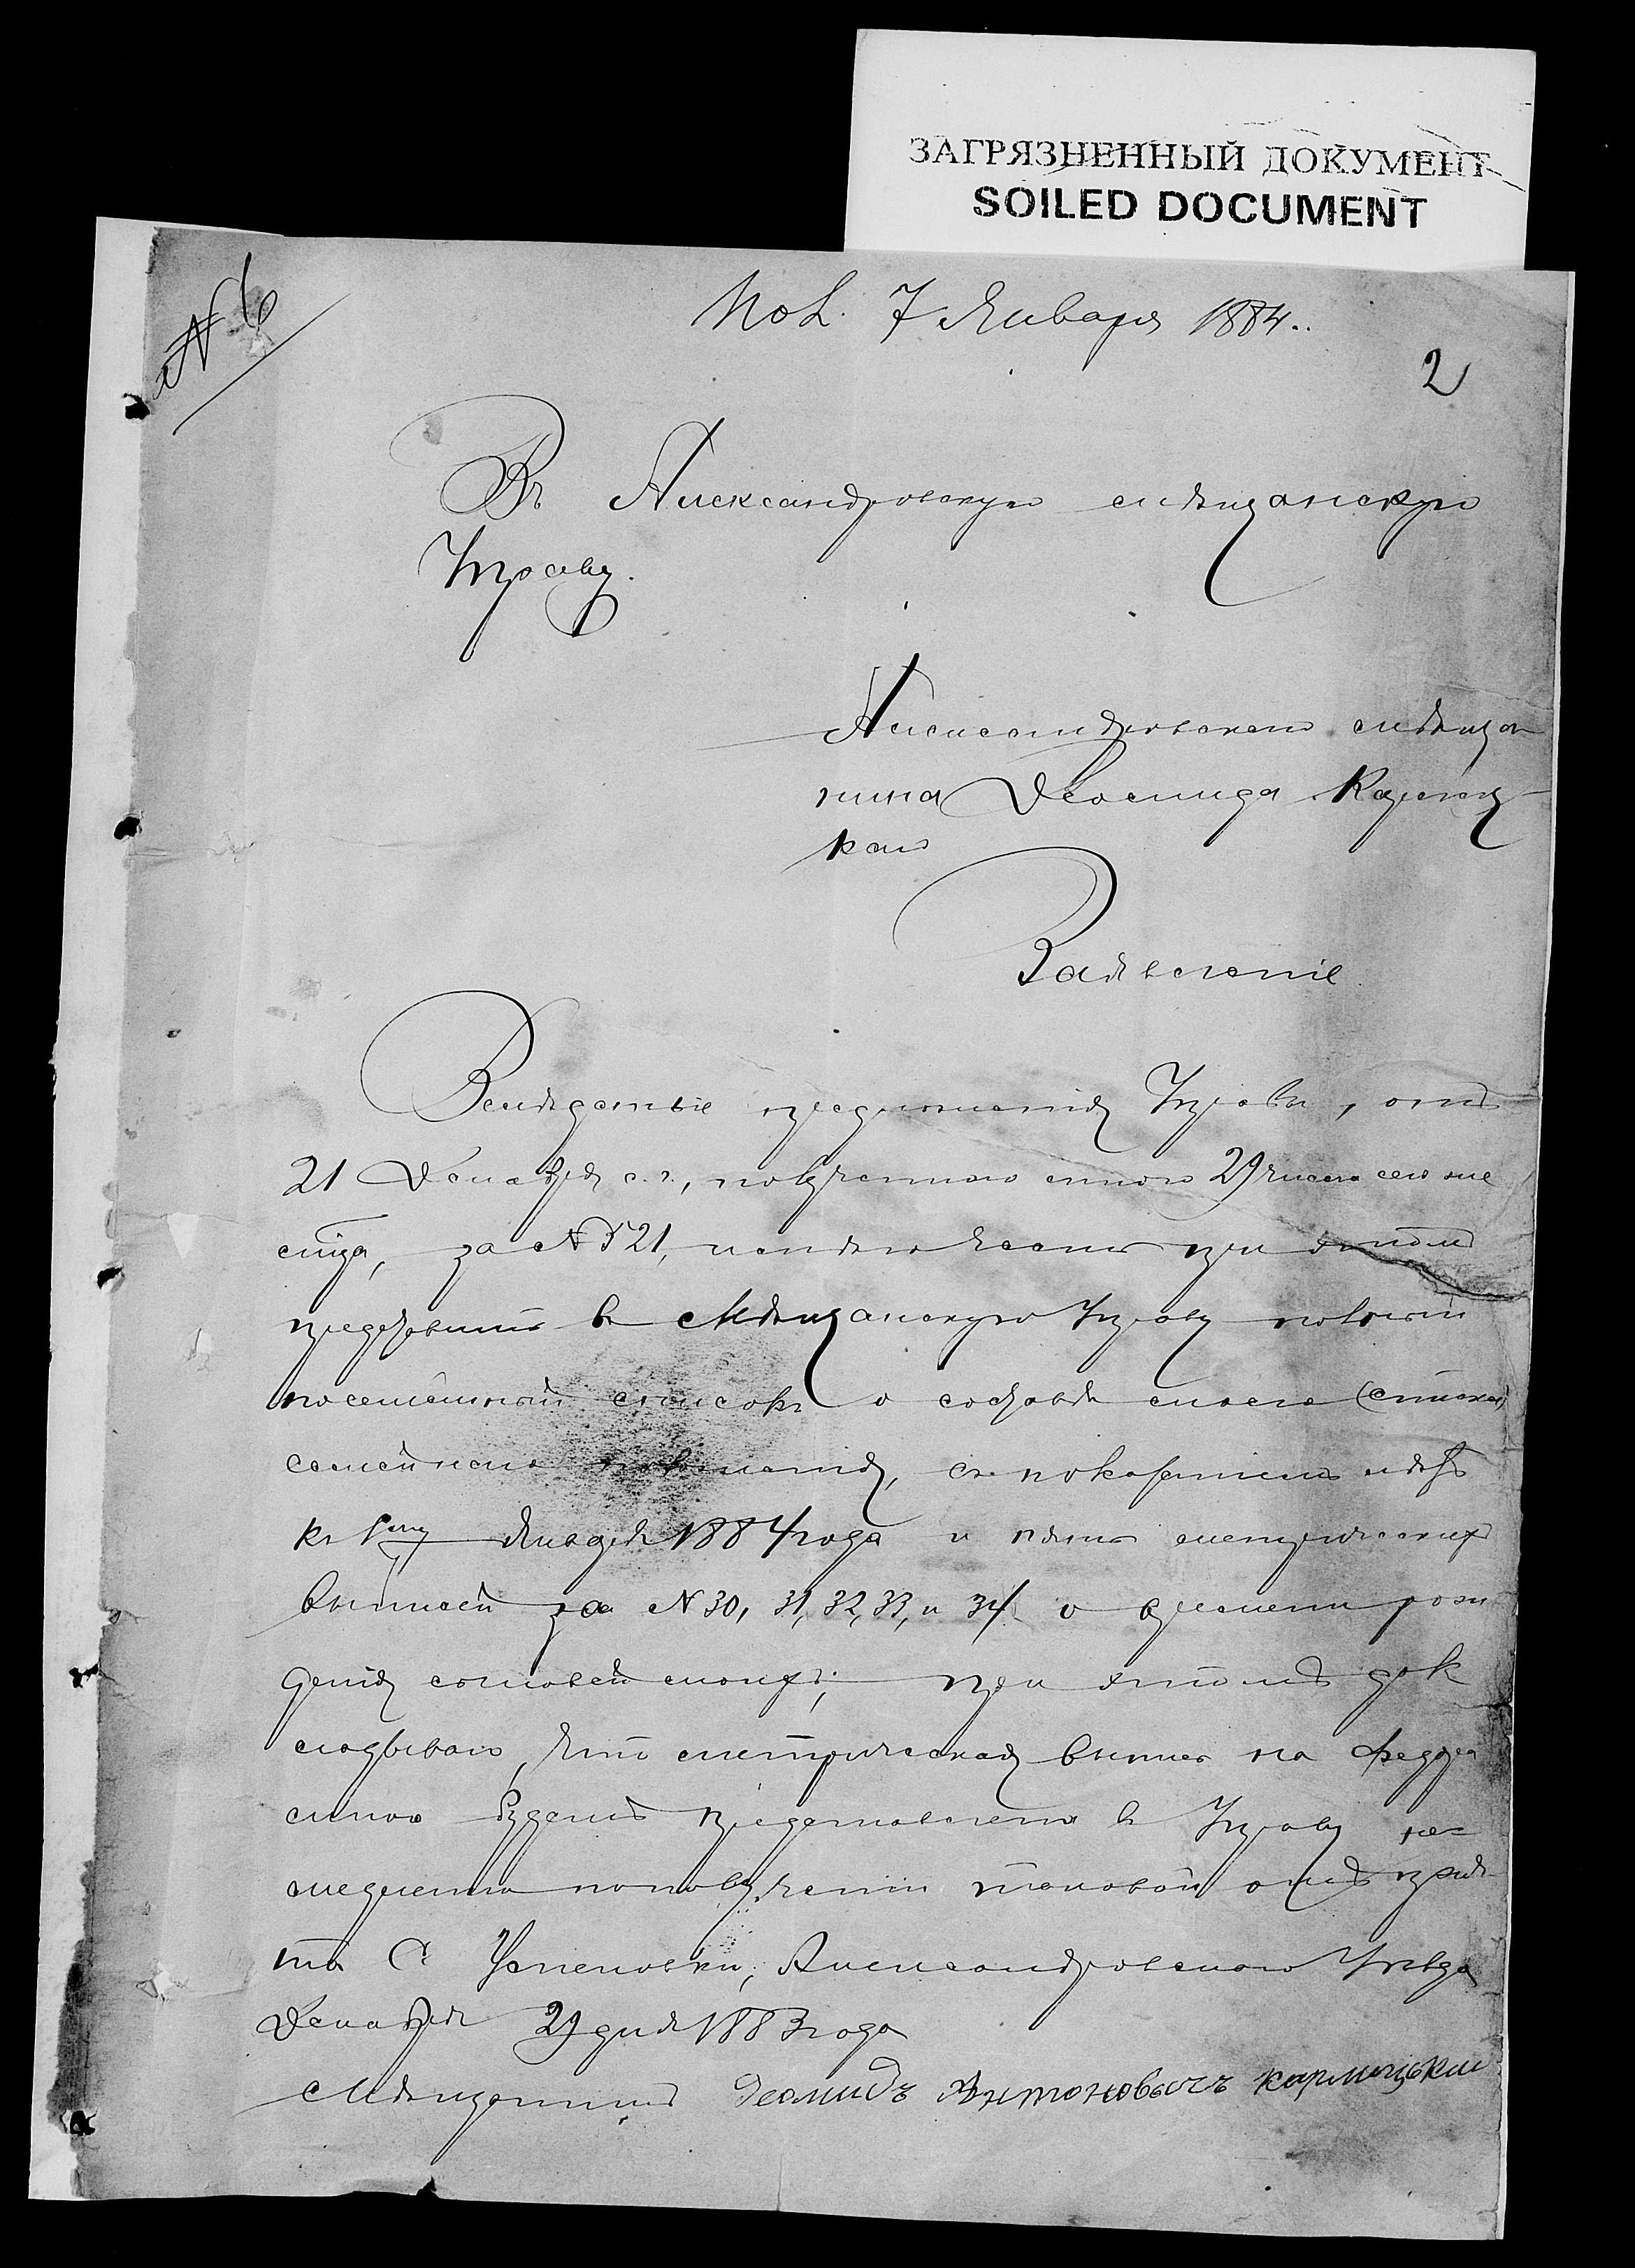 ЗАГРЯЗНЕННЫЙ ДОКУМЕНТ
SOILED DOCUMENT
№ 6
Пол. 7 Января 1884..
2
Въ Александровскую мѣщанскую
Управу.
Александровскаго мѣща
нина Деомида Кармац
каго
Заявленіе
Вслѣдствіе предложенія Управы, отъ
21 Декабря с. г., полученнаго мною 29 числа сего мѣ
сяца, за № 521, имѣю честь при этомъ
представить в Мѣщанскую Управу полный
посемейный списокъ о составѣ моего
семейнаго положенія, съ показаніемъ лѣтъ
къ 1му Января 1884 года и пять метрическихъ
выписей за № 30, 31, 32, 33, и 34 о времени рож
денія сыновей моихъ; при этомъ док
ладываю, что метрическая выпись на Федора
мною будетъ представлена в Управу не=
медленно по получении таковой отъ
С. Успеновки, Александровскаго Уѣзда
Декабря 29 дня 1883 года
Мѣщанинъ Деомидъ Антоновычъ Кармацьки